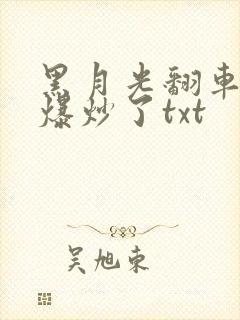 黑月光翻车
爆炒了txt
吴旭东